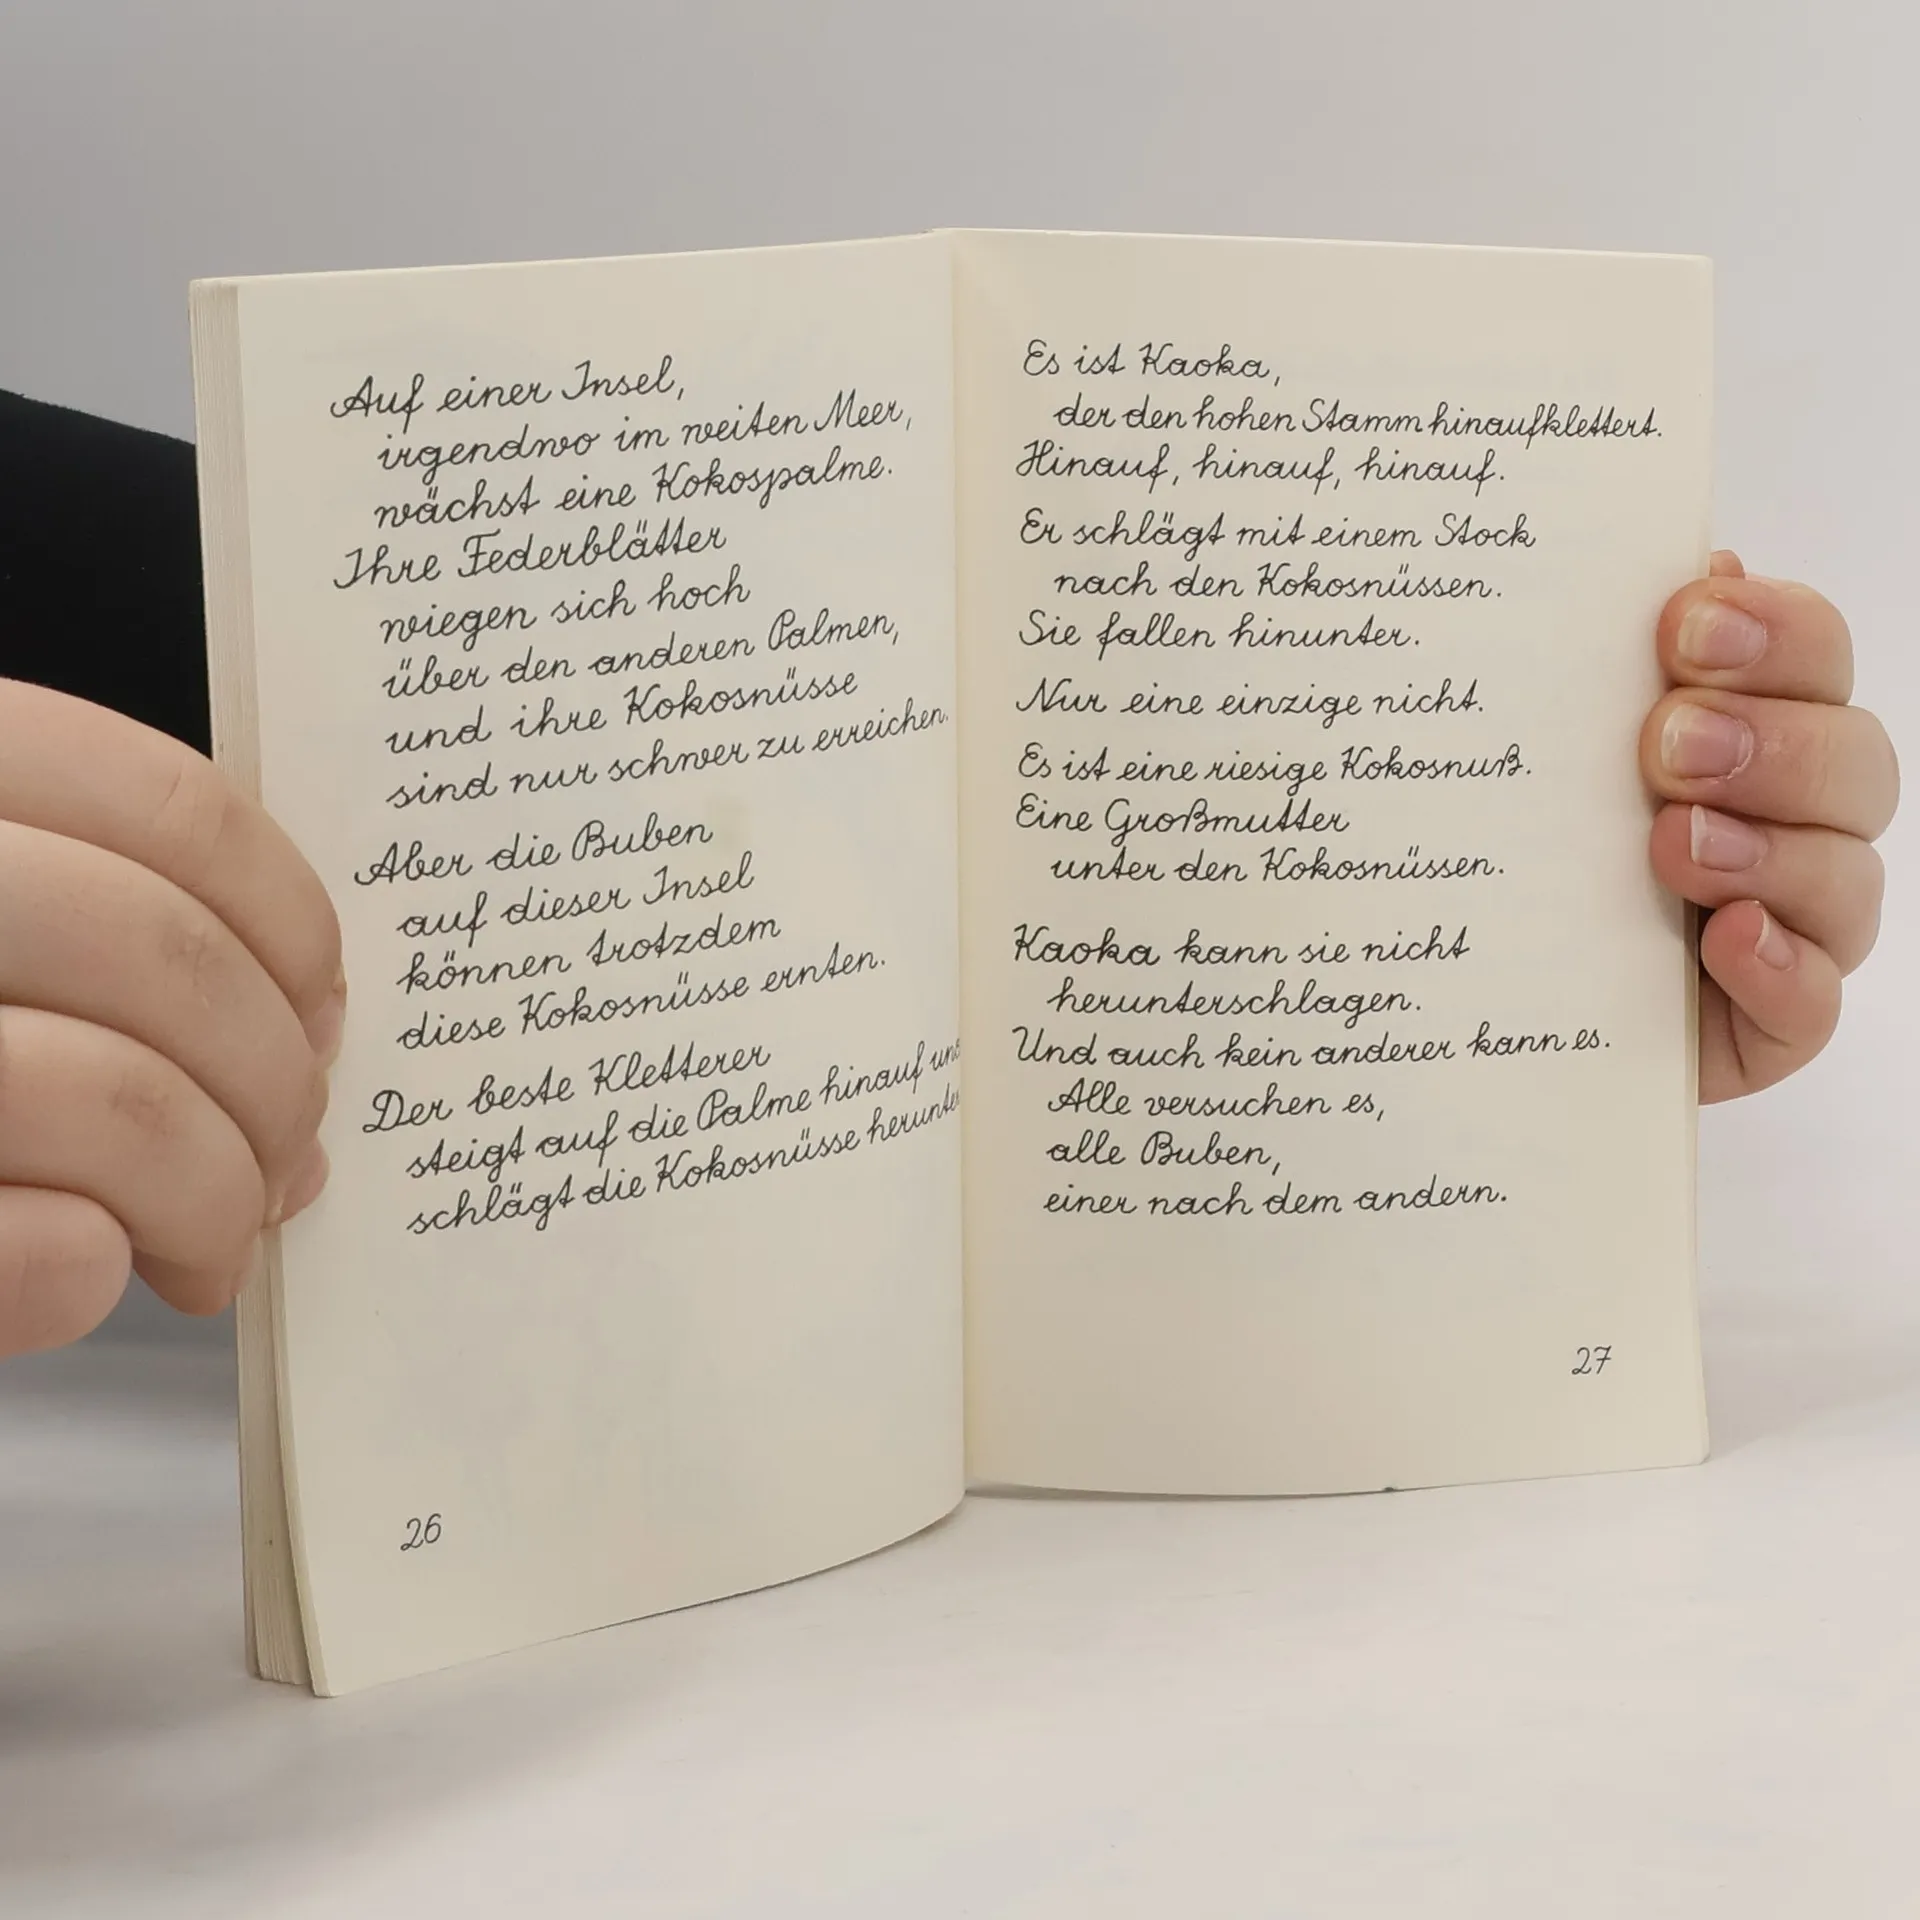 Auf einer Insel,
irgendwo im weiten Meer,
wächst eine Kokospalme.
Ihre Federblätter
wiegen sich hoch
über den anderen Palmen,
und ihre Kokosnüsse
sind nur schwer zu erreichen.
Aber die Buben
auf dieser Insel
können trotzdem
diese Kokosnüsse ernten.
Der beste Kletterer
steigt auf die Palme hinauf und
schlägt die Kokosnüsse herunter
26
Es ist Kaoka,
der den hohen Stamm hinaufklettert.
Hinauf, hinauf, hinauf.
Er schlägt mit einem Stock
nach den Kokosnüssen.
Sie fallen hinunter.
Nur eine einzige nicht.
Es ist eine riesige Kokosnuß.
Eine Großmutter
unter den Kokosnüssen.
Kaoka kann sie nicht
herunterschlagen.
Und auch kein anderer kann es.
Alle versuchen es,
alle Buben,
einer nach dem andern.
27